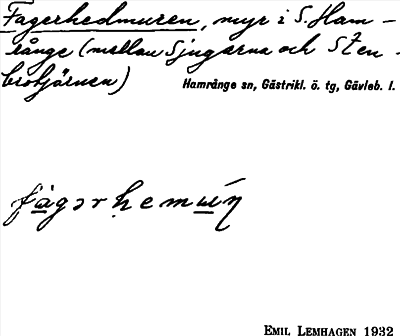 Fagerhedmuren, myr i S. Ham-
rånge (mellan Sjugarna och Sten-
brotjärnen)
Hamrånge sn, Gästrikl. ö. tg, Gävleb. l.
fàgərhemúŋ
EMIL LEMHAGEN 1932